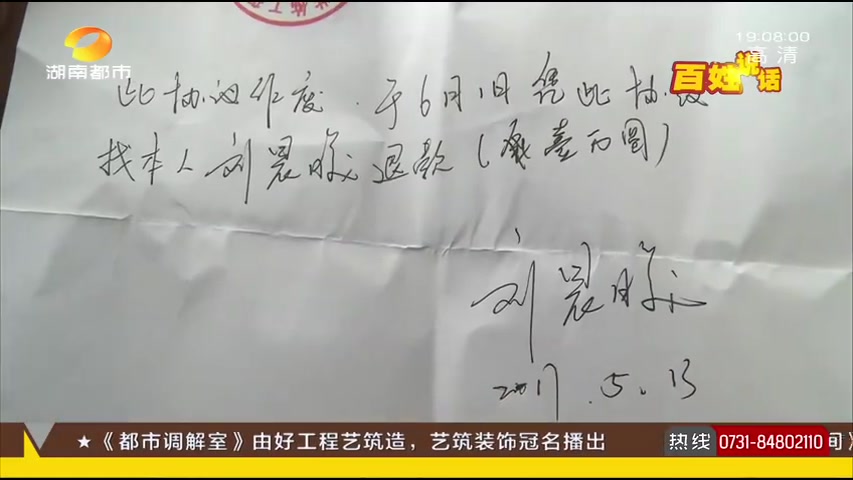 19:08:00
高清
湖南都市
百姓说话
施工
此协议作废.于6月1日凭此协议
找本人刘晨曦退款(贰壹万圆)
刘晨曦
2017.5.13
★《都市调解室》由好工程艺筑造，艺筑装饰冠名播出
热线 0731-84802110 间》